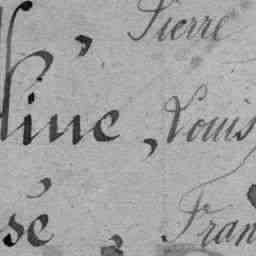 , Pierre
line, Louis
sé, Fran